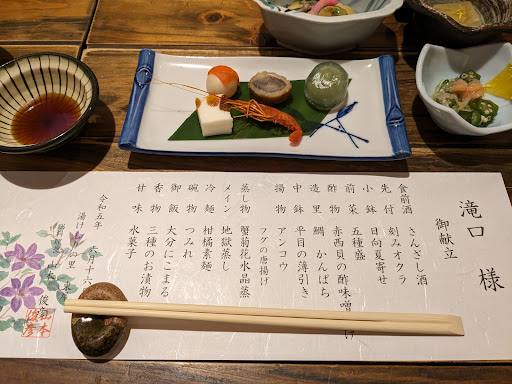 滝口 様
御献立
食前酒 さんざし酒
先付 刻みオクラ
小鉢 日向夏寄せ
前菜 五種盛
酢物 赤西貝の酢味噌
造里 鯛 かんぱち
中鉢 平目の薄引き
揚物 アンコウ
フグの唐揚げ
蒸し物 蟹菊花水晶蒸
メイン 地獄蒸し
冷麺 柑橘素麺
碗物 つみれ
御飯 大分にこまる
香物 三種のお漬物
甘味 水菓子
令和五年 月十六
湯け 里